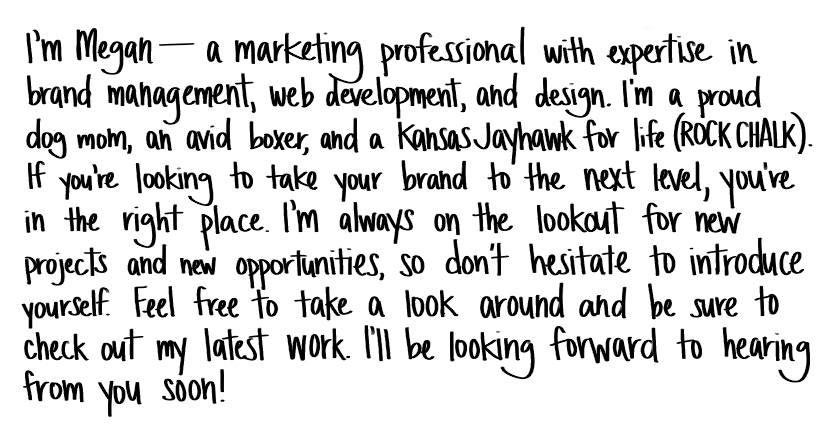 I'm Megan — a marketing professional with expertise in
brand management, web development, and design. I'm a proud
dog mom, an avid boxer, and a Kansas Jayhawk for life (ROCK CHALK).
If you're looking to take your brand to the next level, you're
in the right place. I'm always on the lookout for new
projects and new opportunities, so don't hesitate to introduce
yourself. Feel free to take a look around and be sure to
check out my latest work. I'll be looking forward to hearing
from you soon!